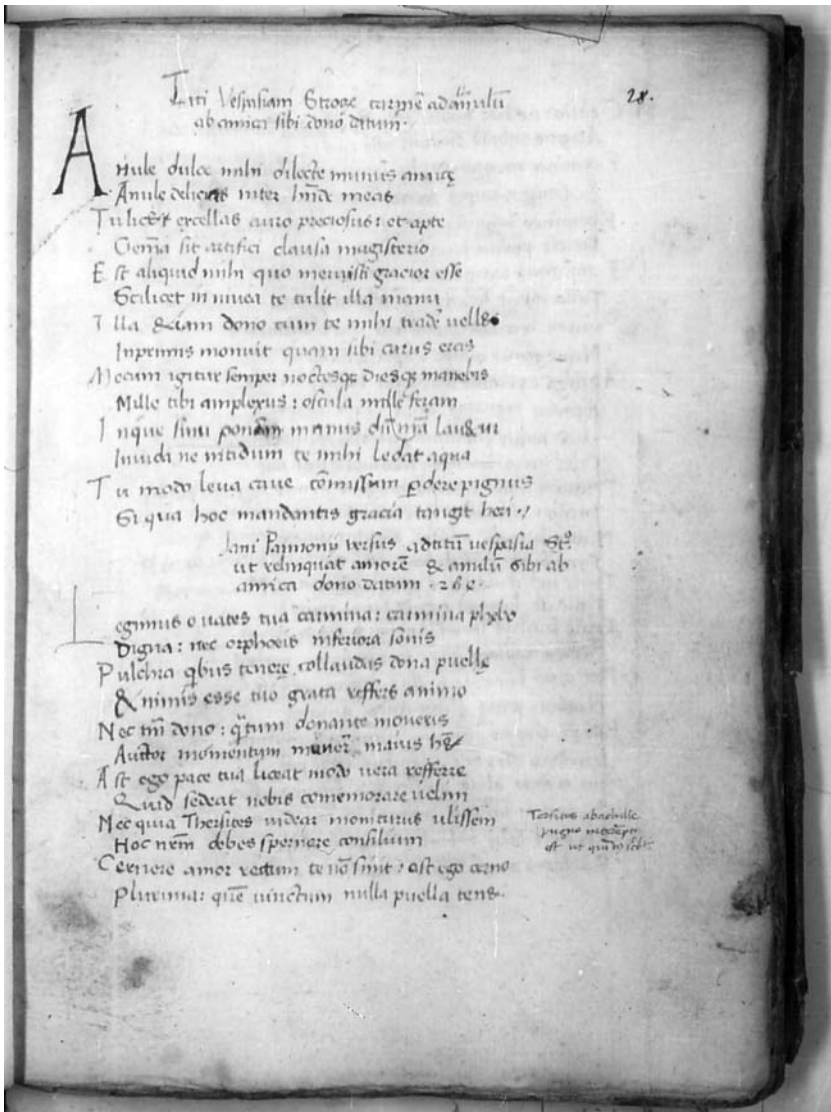 28.
Titi Vespasiani Strozae carmē ad anulū
ab amica sibi dono datum.
Anule dulce mihi dilecte munus amicę
Anule delicias inter hnde meas
Tu licet excellas auro preciosus: et apte
Gemma sit artifici clausa magisterio
Est aliquid mihi quo meruisti gracior esse
Scilicet in nivea te tulit illa manu
Illa &iam dono cum te mihi trade vell&
Inprimis monuit quam sibi carus eras
Mecum igitur semper noctesq diesq manebis
Mille tibi amplexus: oscula mille feram
Inque sinu ponam manus dū lau&ur
Invida ne nitidum te mihi ledat aqua
Tu modo leva cave cōmissum pdere pignus
Si qua hoc mandantis gracia tangit heri
Jani Pannonij versus ad titū vespasia St.
ut relinquat amorē & anulū sibi ab
amica dono datum
Legimus o vates tua carmina: carmina phębo
Digna: nec orpheis inferiora sonis
Pulchra qbus tenerę collaudas dona puellę
& nimis esse tuo grata reffers animo
Nec tm dono: qtum donante moveris
Auctor momentum maius
Ast ego pace tua liceat modo vera refferre
Quid sedeat nobis comemorare velim
Nec quia Thersites videar moniturus ulissem
Hoc debes spernere consilium
Cernere amor rectum te nō sinit: ast ego cerno
Plurima: quē vinctum nulla puella ten&
Tersites abachille
pugno
est ut